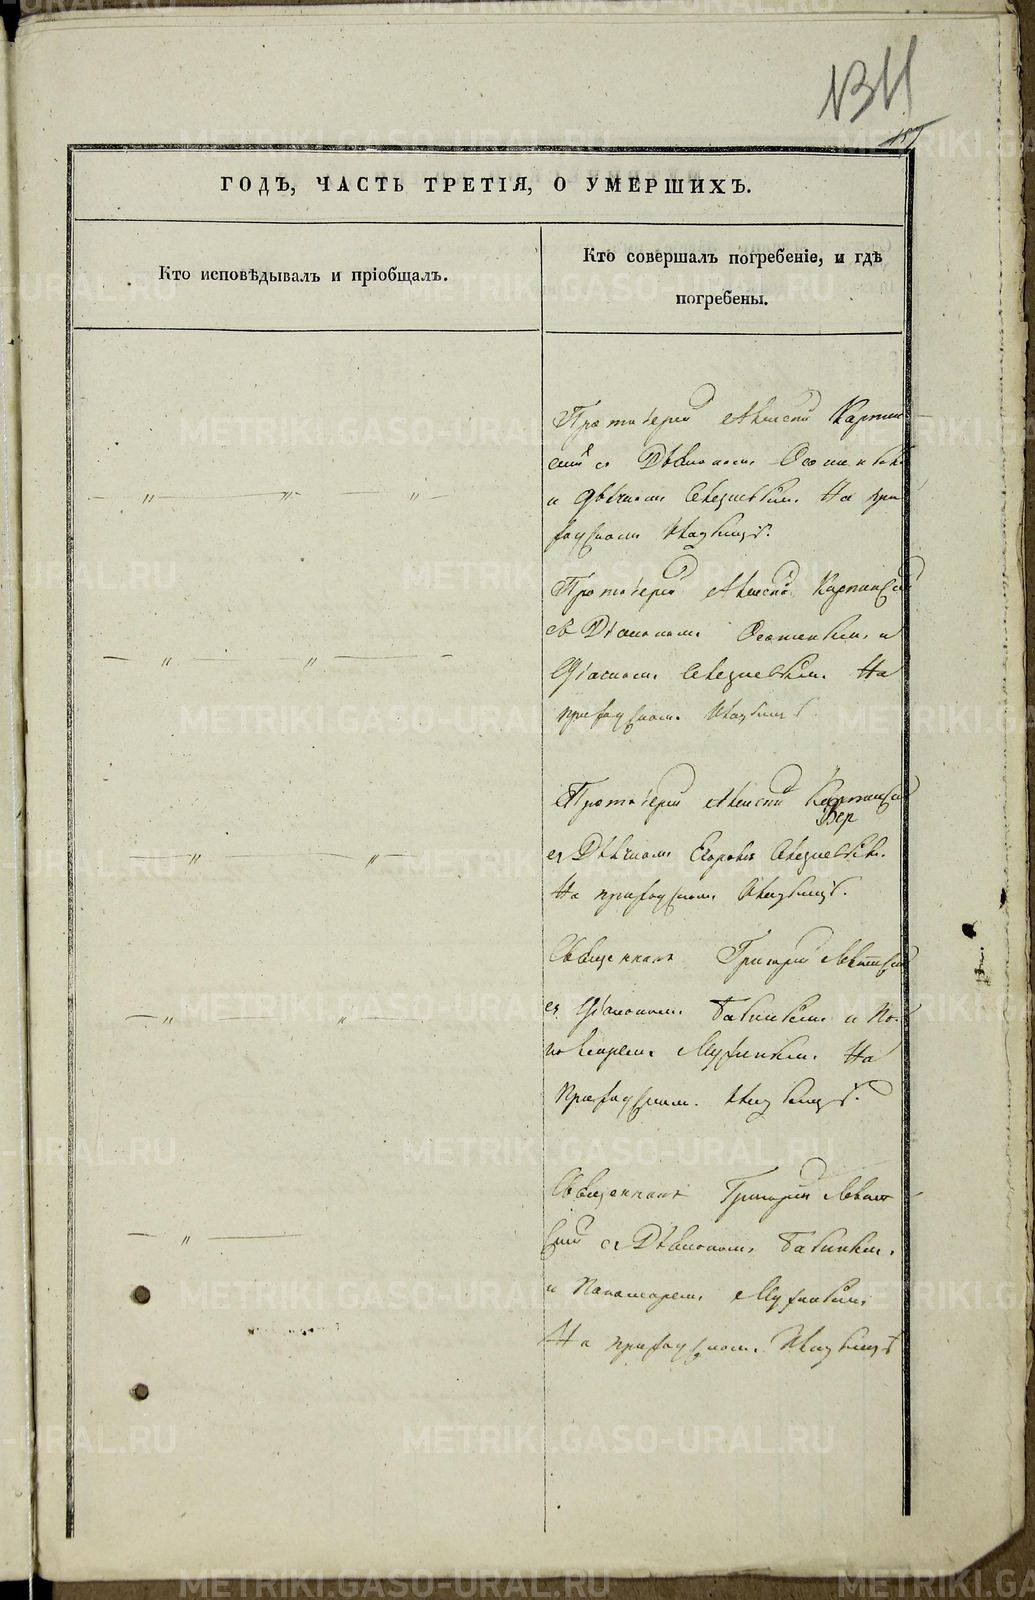 ГОДЪ, ЧАСТЬ ТРЕТІЯ, О УМЕРШИХЪ.
Кто исповѣдывалъ и пріобщалъ.
Кто совершалъ погребеніе, и гдѣ
погребены.
Протоіерей Алексѣй Карпин
скій съ Діакономъ
и Дьячкомъ На при
ходскомъ кладбищѣ.
Протоіерей Алексѣй Карпинскій
съ Діакономъ и
На
приходскомъ кладбищѣ
Протоіерей Алексѣй Карпинскій
съ Дьячкомъ
На приходскомъ кладбищѣ.
Священникъ Григорій Левитскій
съ Діакономъ Бабинымъ и По
номаремъ На
Приходскомъ кладбищѣ.
Священникъ Григорій Левит
скій съ Діакономъ Бабинымъ
и Пономаремъ
На приходскомъ кладбищѣ
METRIKI.GASO-URAL.RU